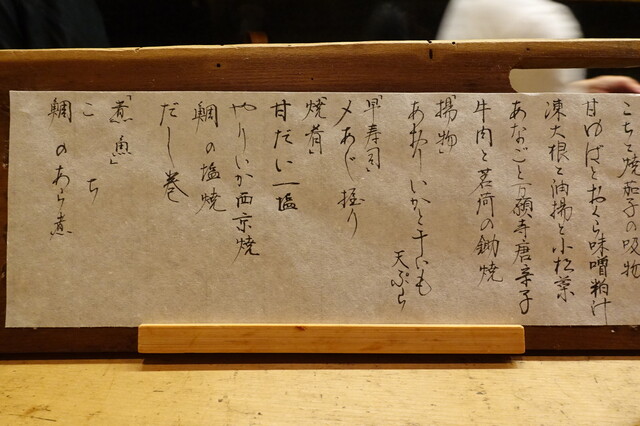 こちと焼茄子の吸物
甘ゆばとおくら味噌粕汁
凍大根と油揚と小松菜
あなごと万願寺唐辛子
牛肉と茗荷の鋤焼
「揚物」
あおりいかと干いも
天ぷら
「早寿司」
〆あじ握り
「焼肴」
甘だい一塩
やりいか西京焼
鯛の塩焼
だし巻
「煮魚」
こち
鯛のあら煮